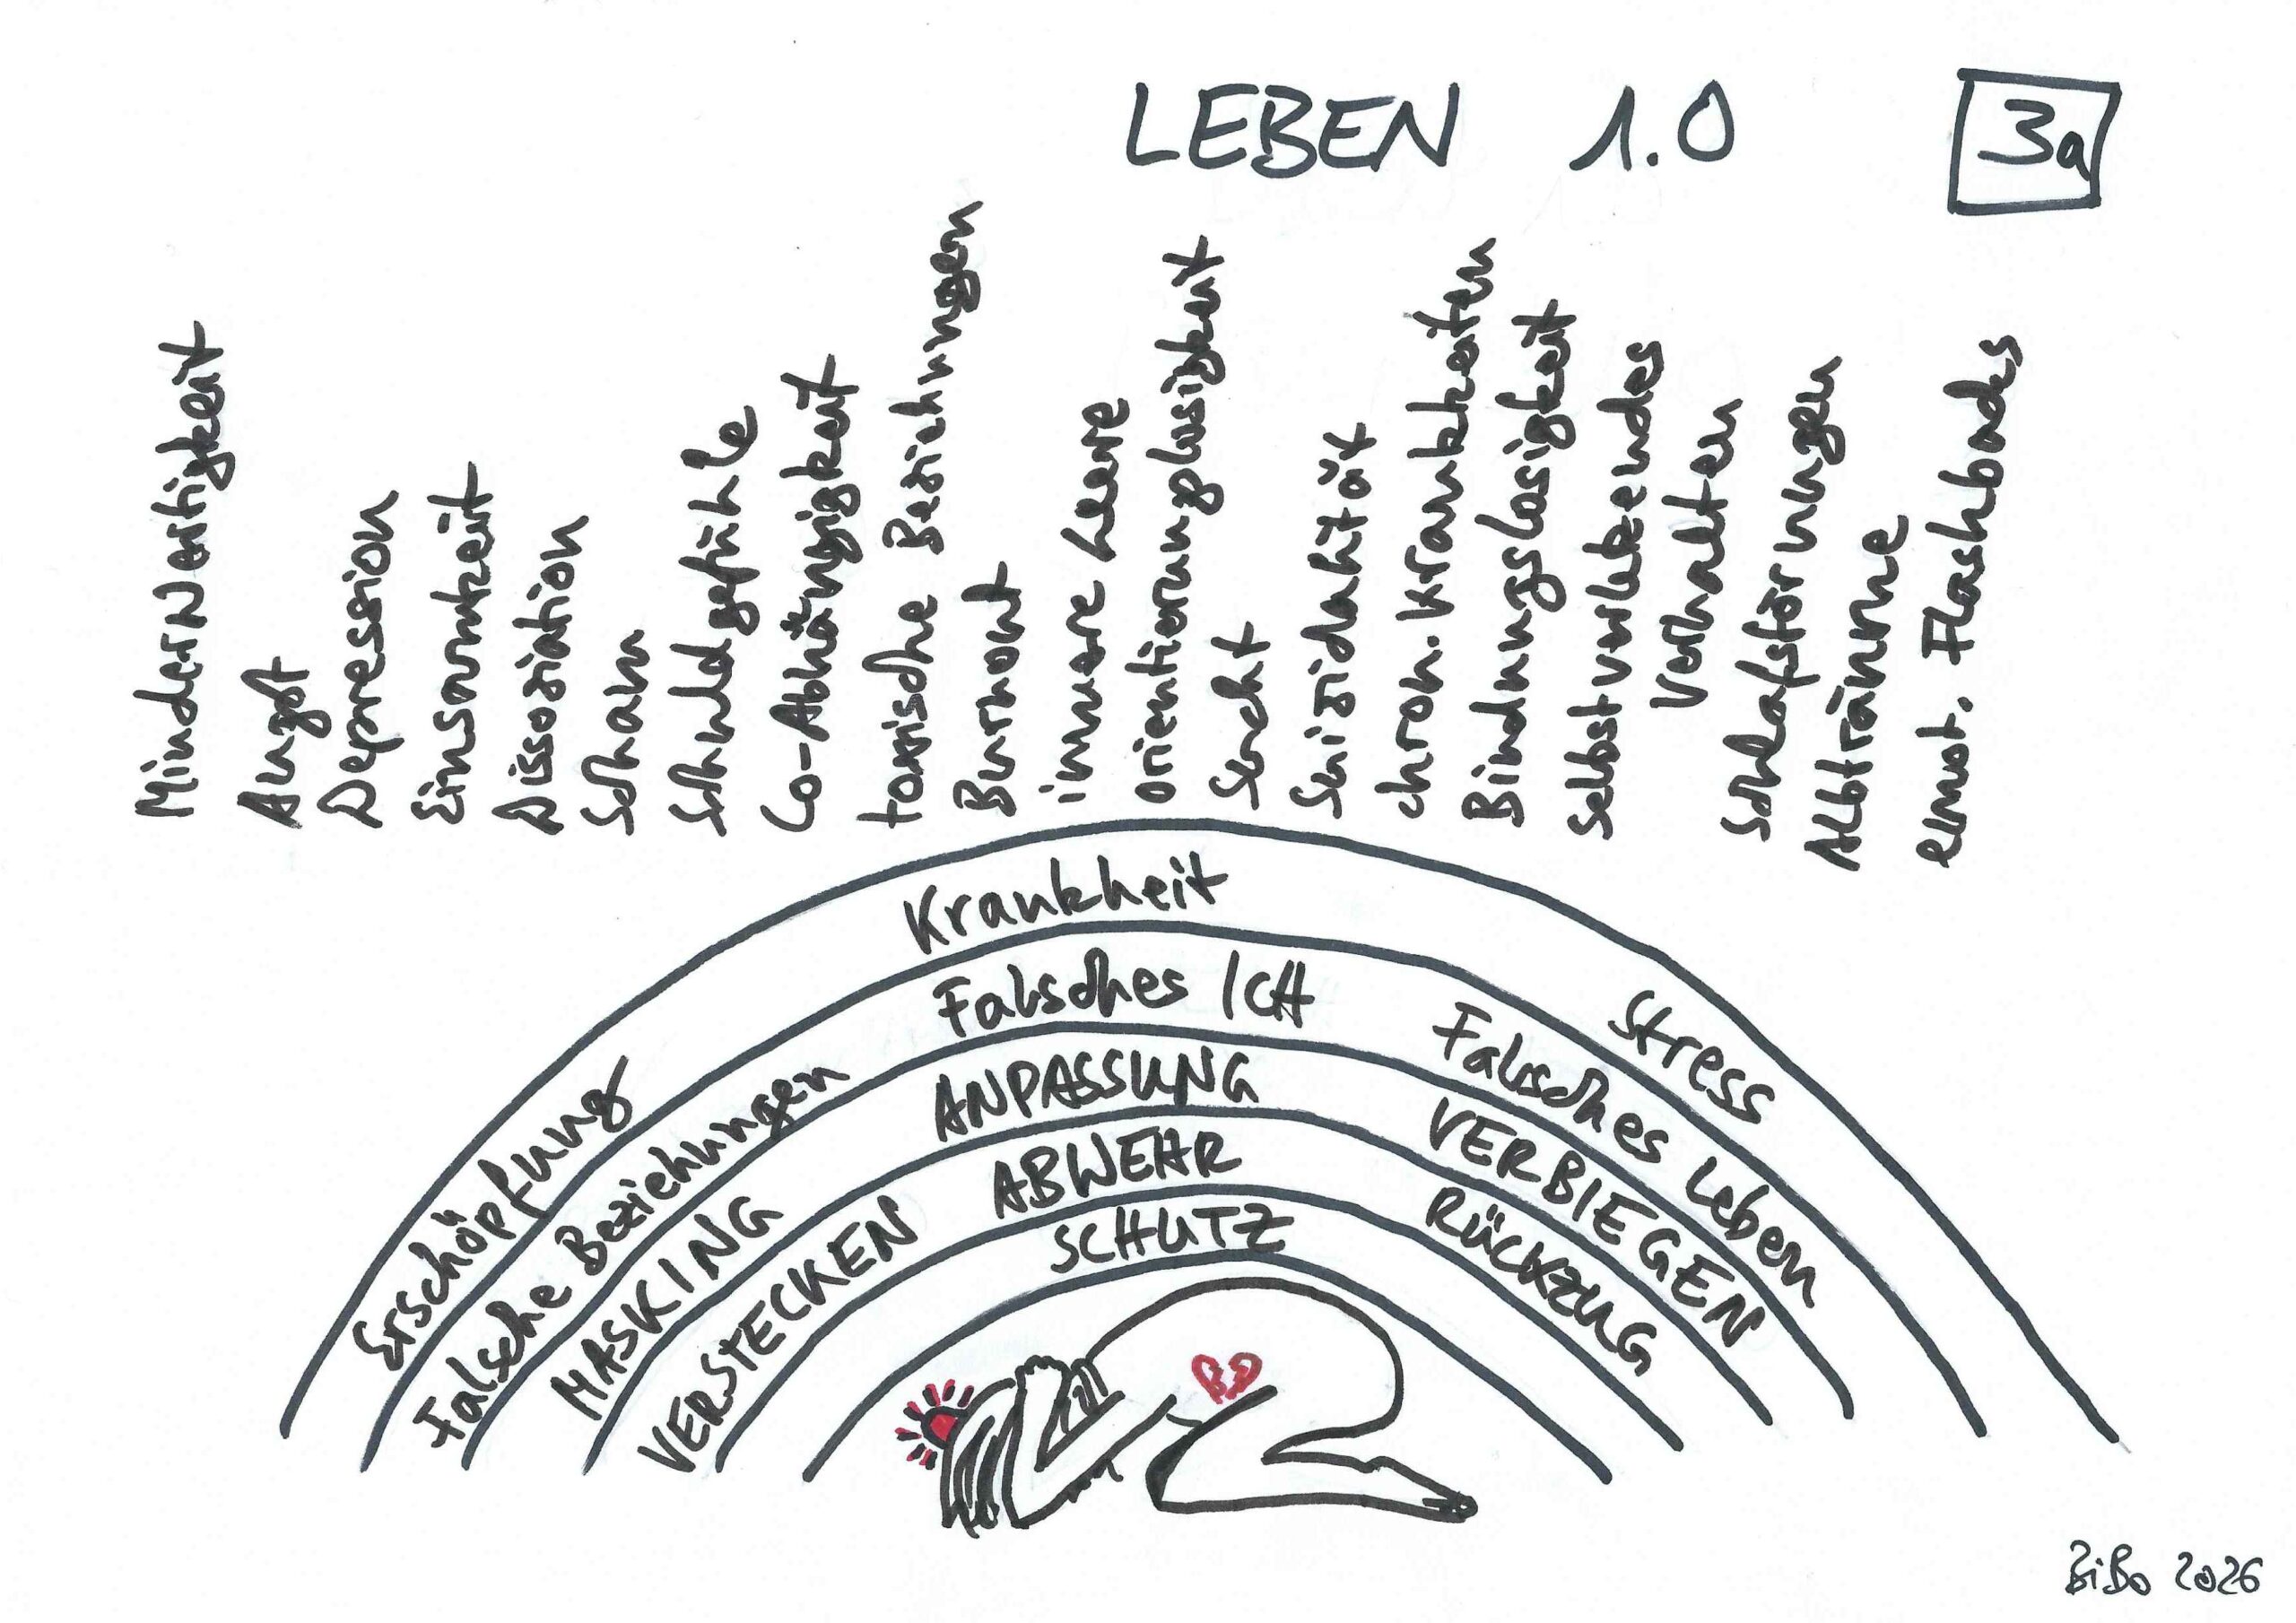 LEBEN 1.0
3a
Minderwertigkeit
Angst
Depression
Einsamkeit
Dissoziation
Scham
Schuldgefühle
Co-Abhängigkeit
toxische Beziehungen
Burnout
innere Leere
Orientierungslosigkeit
Sucht
Suizidalität
chron. Krankheiten
Bindungslosigkeit
Selbstverletzendes
Verhalten
Schlafstörungen
Albträume
emot. Flashbacks
Erschöpfung Krankheit Stress
Falsche Beziehungen Falsches ICH Falsches Leben
MASKING ANPASSUNG VERBIEGEN
VERSTECKEN ABWEHR RÜCKZUG
SCHUTZ
BiBo 2026